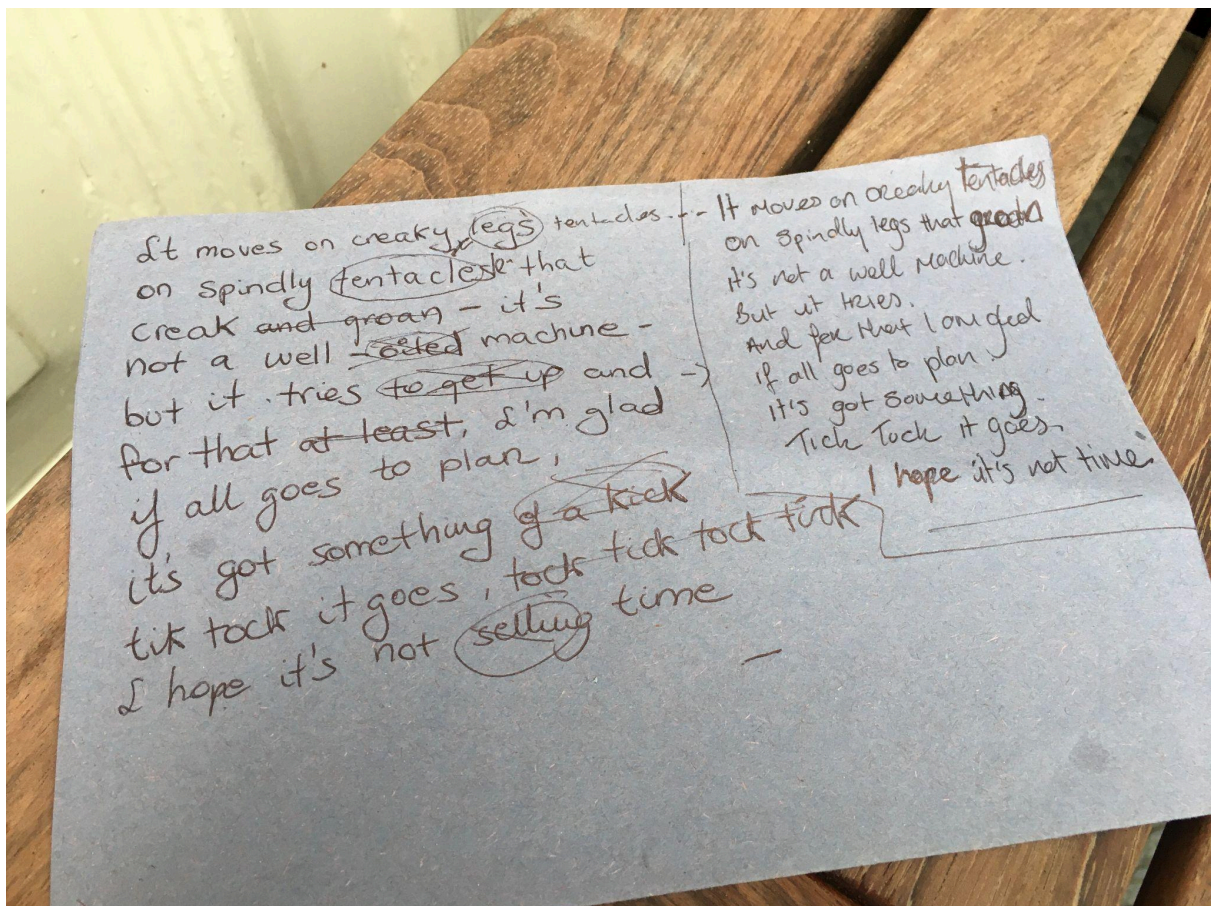 It moves on creaky legs tentacles --
on spindly tentacles that
creak and groan - it's
not a well - oiled machine -
but it tries to get up and
for that at least, I'm glad
if all goes to plan,
it's got something of a kick
tik tock it goes, tock tick tock tick
I hope it's not selling time
- It moves on creaky tentacles
on spindly legs that groan
it's not a well machine.
But it tries.
And for that I am glad
if all goes to plan.
it's got something.
Tick Tock it goes.
I hope it's not time.